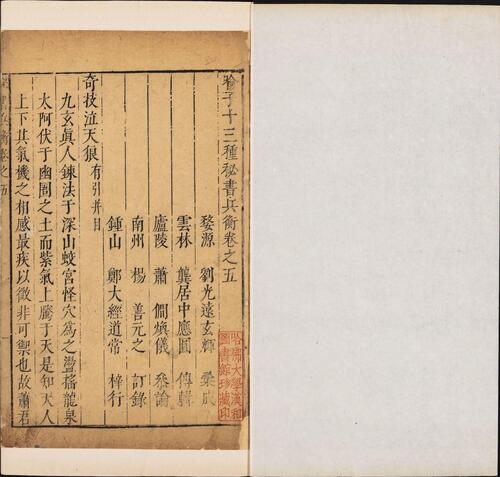 喻子十三種秘書兵衡卷之五
婺源 劉光遠玄輝 彙成
雲林 龔居中應圓 傳輯
廬陵 蕭 僩煥儀 叅論
南州 楊 善元之 訂錄
鍾山 鄭大經道常 梓行
奇技泣天狼 有引并目
九玄真人鍊法于深山蛟宮怪穴為之盪搖龍泉
太阿伏于幽圄之土而紫氣上騰于天是知天人
上下其氣機之相感最疾以微非可禦也故蕭君
哈佛大學漢和
圖書館珍藏印